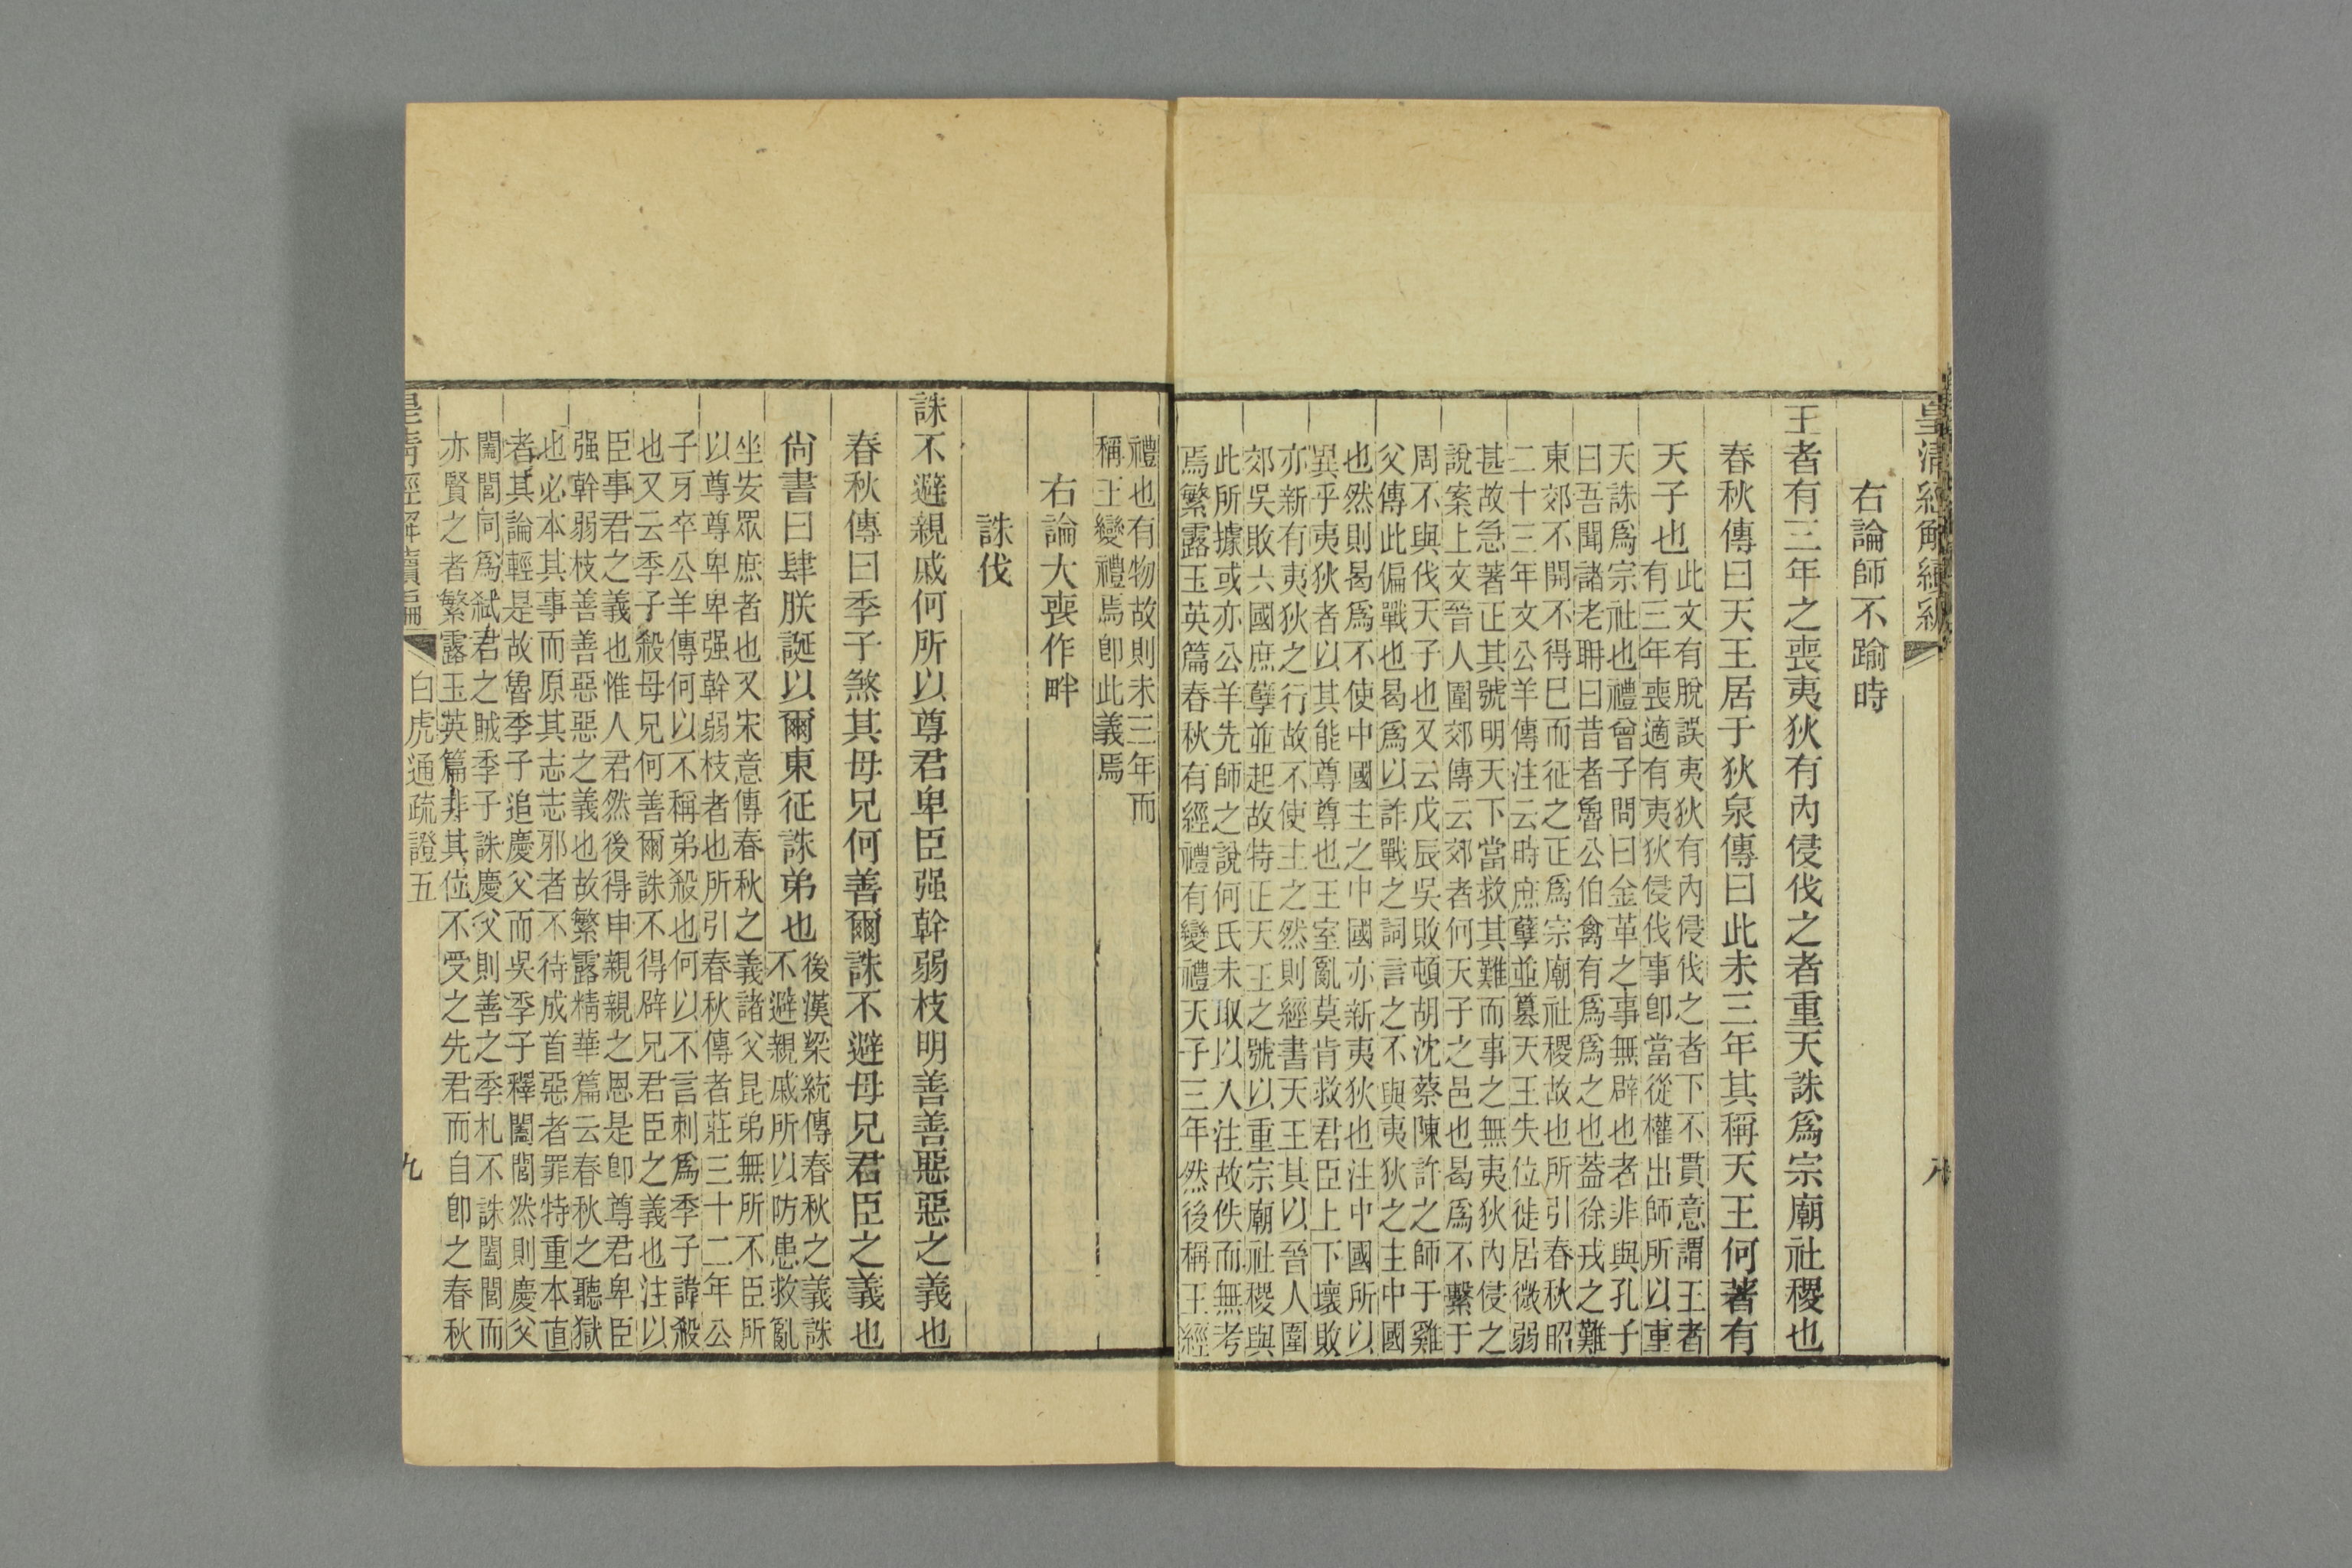 皇清經解續編
八
右論師不踰時
王者有三年之喪夷狄有內侵伐之者重天誅爲宗廟社稷也
春秋傳曰天王居于狄泉傳曰此未三年其稱天王何著有
天子也
此文有脫誤夷狄有內侵伐之者下不貫意謂王者
有三年喪適有夷狄侵伐事卽當從權出師所以重
天誅爲宗社也禮曾子問曰金革之事無辟也者非與孔子
曰吾聞諸老聃曰昔者魯公伯禽有爲爲之也葢徐戎之難
東郊不開不得巳而征之正爲宗廟社稷故也所引春秋昭
二十三年文公羊傳注云時庶孽並篡天王失位徙居微弱
甚故急著正其號明天下當救其難而事之無夷狄內侵之
說案上文晉人圍郊傳云郊者何天子之邑也曷爲不繫于
周不與伐天子也又云戊辰吳敗頓胡沈蔡陳許之師于雞
父傳此偏戰也曷爲以詐戰之詞言之不與夷狄之主中國
也然則曷爲不使中國主之中國亦新夷狄也注中國所以
異乎夷狄者以其能尊尊也王室亂莫肯救君臣上下壞敗
亦新有夷狄之行故不使主之然則經書天王其以晉人圍
郊吳敗六國庶孽並起故特正天王之號以重宗廟社稷與
此所據或亦公羊先師之說何氏未取以入注故佚而無考
焉繁露玉英篇春秋有經禮有變禮天子三年然後稱王經
禮也有物故則未三年而
稱王變禮焉卽此義焉
右論大喪作畔
誅伐
誅不避親戚何所以尊君卑臣强幹弱枝明善善惡惡之義也
春秋傳曰季子煞其母兄何善爾誅不避母兄君臣之義也
尙書曰肆朕誕以爾東征誅弟也
後漢梁統傳春秋之義誅
不避親戚所以防患救亂
坐安眾庶者也又宋意傳春秋之義諸父昆弟無所不臣所
以尊尊卑卑强幹弱枝者也所引春秋傳者莊三十二年公
子牙卒公羊傳何以不稱弟殺也何以不言刺爲季子諱殺
也又云季子殺母兄何善爾誅不得辟兄君臣之義也注以
臣事君之義也惟人君然後得申親親之恩是卽尊君卑臣
强幹弱枝善善惡惡之義也故繁露精華篇云春秋之聽獄
也必本其事而原其志志邪者不待成首惡者罪特重本直
者其論輕是故魯季子追慶父而吳季子釋闔閭然則慶父
闔閭同爲弒君之賊季子誅慶父則善之季札不誅闔閭而
亦賢之者繁露玉英篇非其位不受之先君而自卽之春秋
皇淸經解續編
白虎通疏證五
九